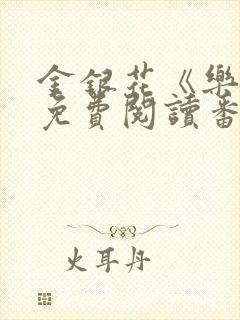 金銀花《樂
免費閱讀番
火耳丹